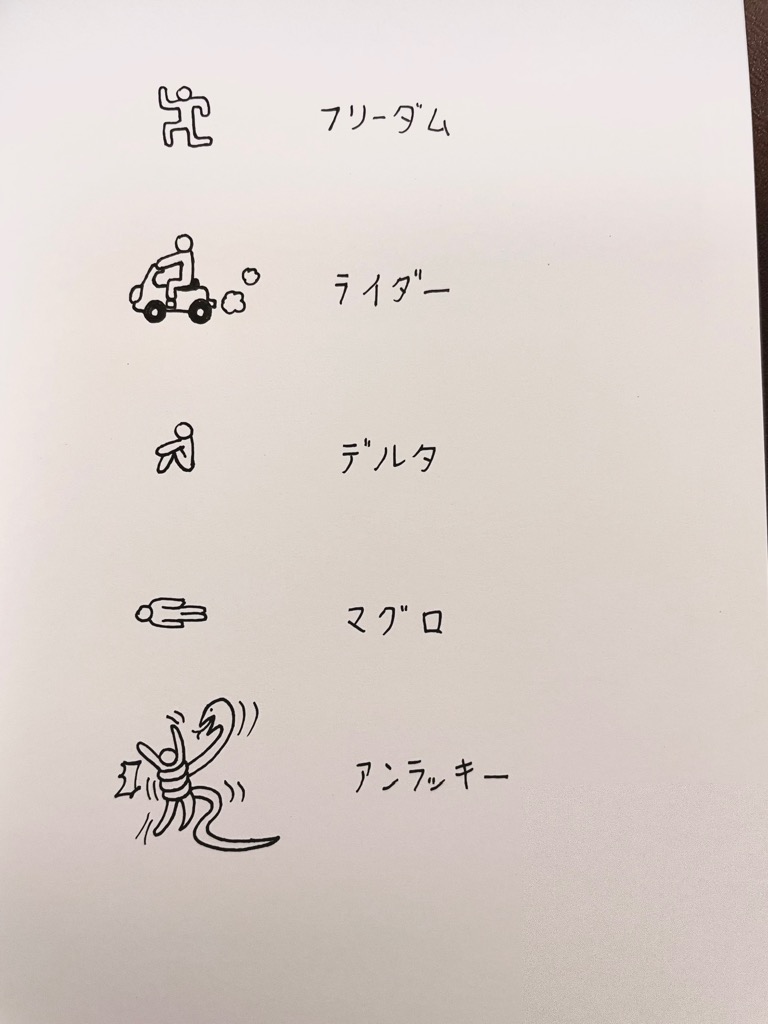 フリーダム
ライダー
デルタ
マグロ
アンラッキー